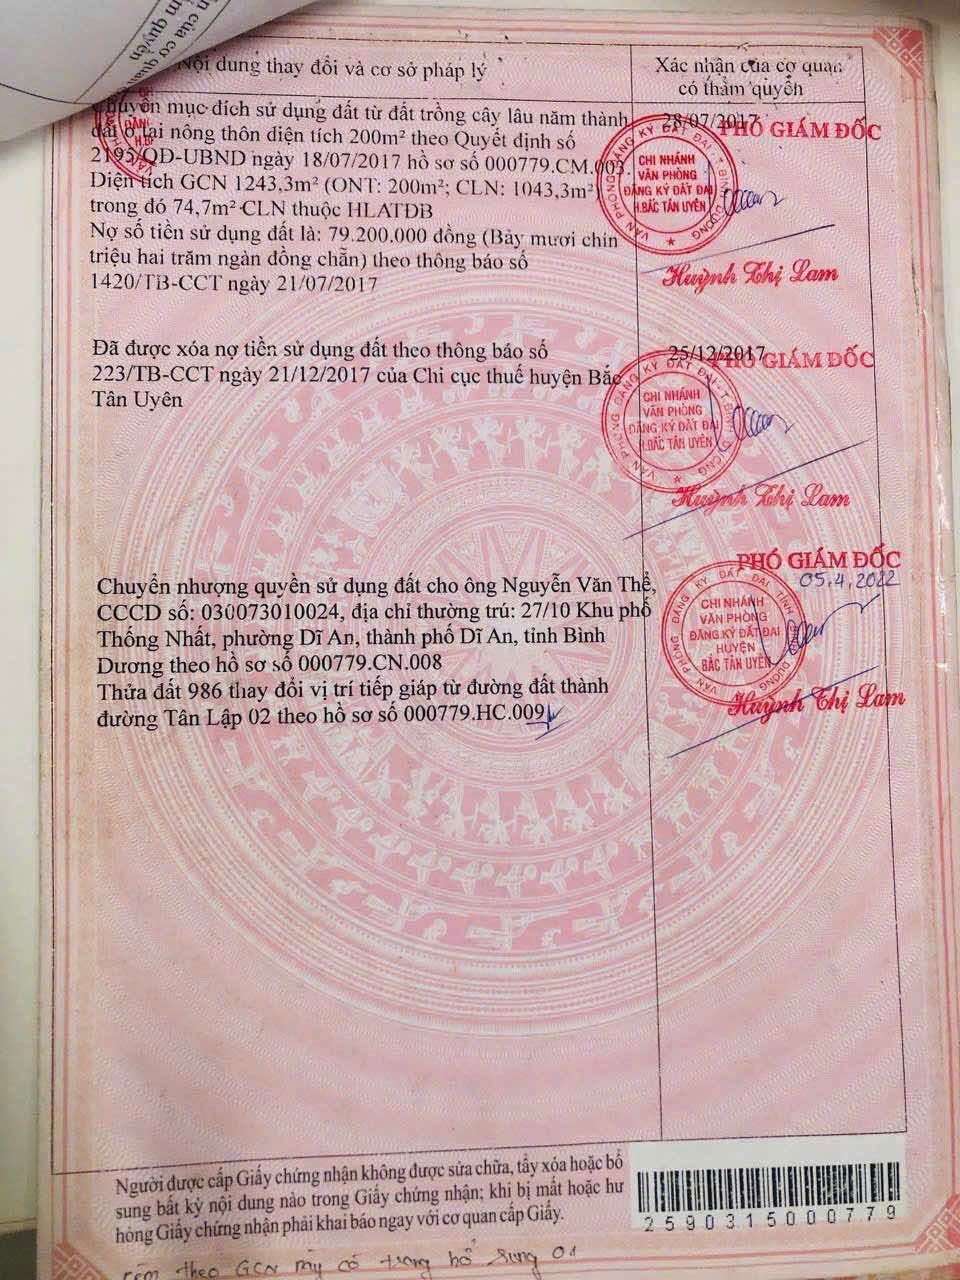 Nội dung thay đổi và cơ sở pháp lý
Xác nhận của cơ quan
có thẩm quyền
Chuyển mục đích sử dụng đất từ đất trồng cây lâu năm thành
đất ở tại nông thôn diện tích 200m² theo Quyết định số
2195/QĐ-UBND ngày 18/07/2017 hồ sơ số 000779.CM.003.
Diện tích GCN 1243,3m² (ONT: 200m²; CLN: 1043,3m²)
trong đó 74,7m² CLN thuộc HLATĐB
Nợ số tiền sử dụng đất là: 79.200.000 đồng (Bảy mươi chín
triệu hai trăm ngàn đồng chẵn) theo thông báo số
1420/TB-CCT ngày 21/07/2017
28/07/2017
PHÓ GIÁM ĐỐC
VĂN PHÒNG ĐĂNG KÝ ĐẤT ĐAI T.BÌNH DƯƠNG
CHI NHÁNH
VĂN PHÒNG
ĐĂNG KÝ ĐẤT ĐAI
H.BẮC TÂN UYÊN
Huỳnh Thị Lam
Đã được xóa nợ tiền sử dụng đất theo thông báo số
223/TB-CCT ngày 21/12/2017 của Chi cục thuế huyện Bắc
Tân Uyên
25/12/2017
PHÓ GIÁM ĐỐC
VĂN PHÒNG ĐĂNG KÝ ĐẤT ĐAI T.BÌNH DƯƠNG
CHI NHÁNH
VĂN PHÒNG
ĐĂNG KÝ ĐẤT ĐAI
H.BẮC TÂN UYÊN
Huỳnh Thị Lam
Chuyển nhượng quyền sử dụng đất cho ông Nguyễn Văn Thể,
CCCD số: 030073010024, địa chỉ thường trú: 27/10 Khu phố
Thống Nhất, phường Dĩ An, thành phố Dĩ An, tỉnh Bình
Dương theo hồ sơ số 000779.CN.008
Thửa đất 986 thay đổi vị trí tiếp giáp từ đường đất thành
đường Tân Lập 02 theo hồ sơ số 000779.HC.009
PHÓ GIÁM ĐỐC
05.4.2022
VĂN PHÒNG ĐĂNG KÝ ĐẤT ĐAI TỈNH BÌNH DƯƠNG
CHI NHÁNH
VĂN PHÒNG
ĐĂNG KÝ ĐẤT ĐAI
HUYỆN
BẮC TÂN UYÊN
Huỳnh Thị Lam
Người được cấp Giấy chứng nhận không được sửa chữa, tẩy xóa hoặc bổ
sung bất kỳ nội dung nào trong Giấy chứng nhận; khi bị mất hoặc hư
hỏng Giấy chứng nhận phải khai báo ngay với cơ quan cấp Giấy.
2590315000779
theo GCN này có trang bổ sung 01